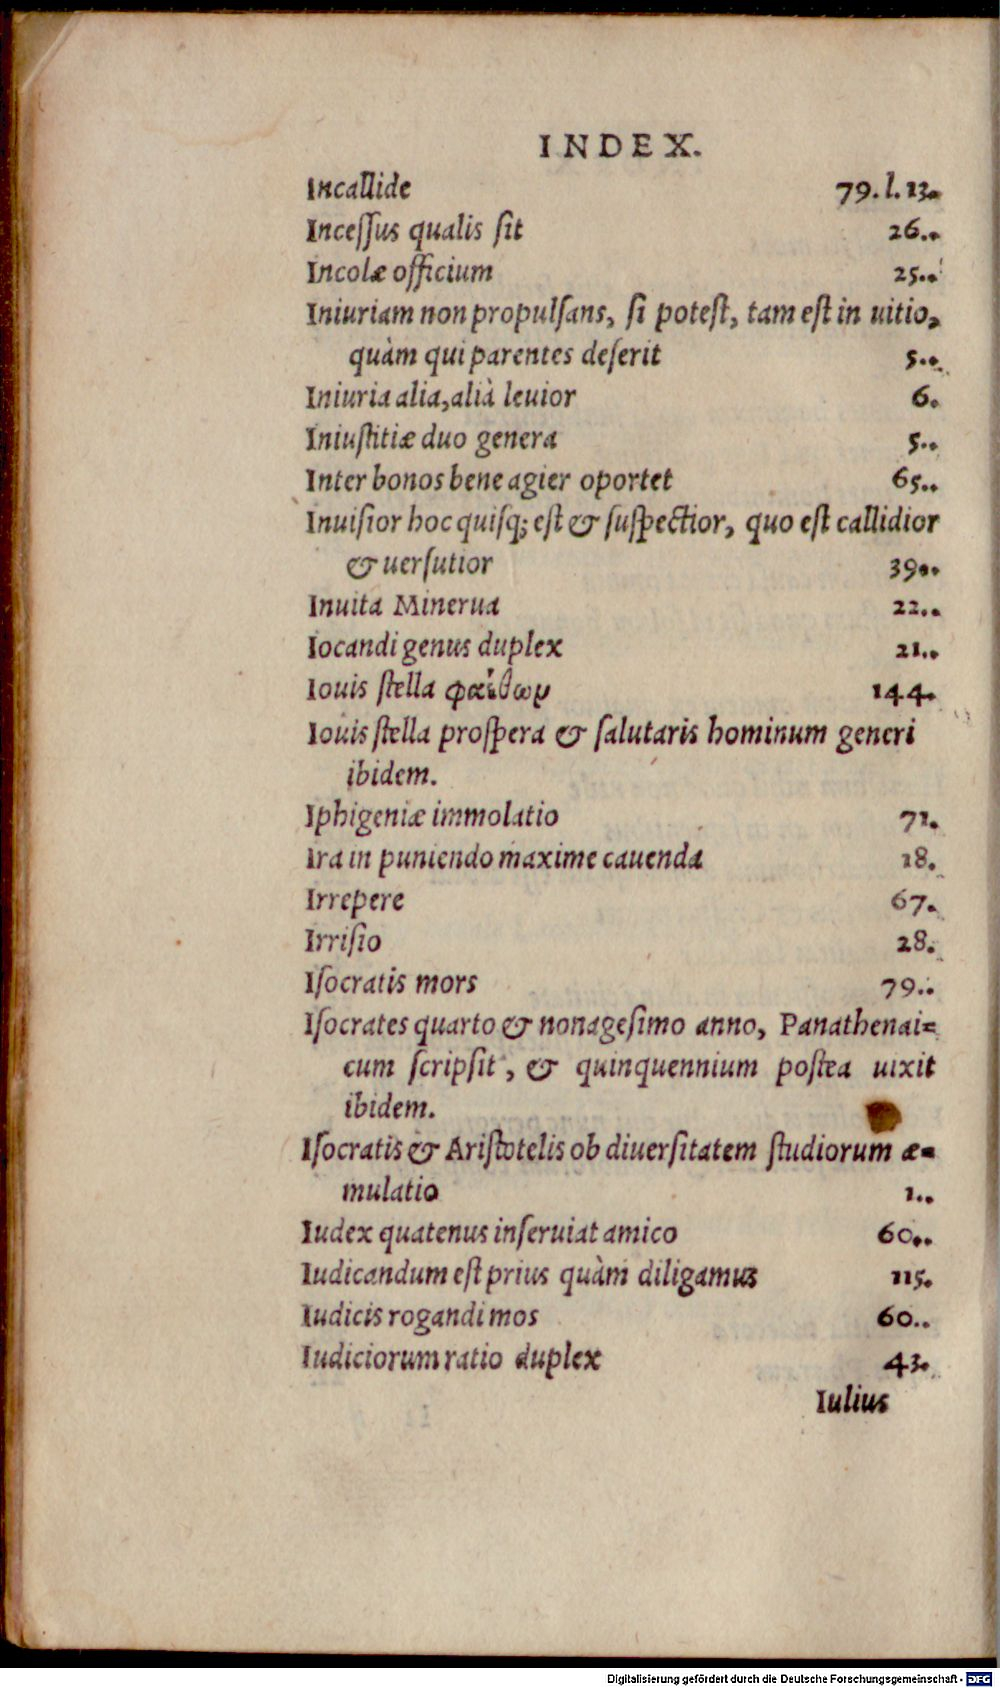 INDEX.
Incallide 79. l. 13.
Inceſſus qualis ſit 26..
Incolæ officium 25..
Iniuriam non propulſans, ſi poteſt, tam eſt in uitio,
quàm qui parentes deſerit 5..
Iniuria alia, alià leuior 6.
Iniuſtitiæ duo genera 5..
Inter bonos bene agier oportet 65..
Inuiſior hoc quiſq; eſt & ſuſpectior, quo eſt callidior
& uerſutior 39..
Inuita Minerua 22..
Iocandi genus duplex 21..
Iouis ſtella φαέθων 144.
Iouis ſtella proſpera & ſalutaris hominum generi
ibidem.
Iphigeniæ immolatio 71.
Ira in puniendo maxime cauenda 18.
Irrepere 67.
Irriſio 28.
Iſocratis mors 79..
Iſocrates quarto & nonageſimo anno, Panathenai=
cum ſcripſit, & quinquennium poſtea uixit
ibidem.
Iſocratis & Ariſtotelis ob diuerſitatem ſtudiorum æ=
mulatio 1..
Iudex quatenus inſeruiat amico 60..
Iudicandum eſt prius quàm diligamus 115.
Iudicis rogandi mos 60..
Iudiciorum ratio duplex 43.
Iulius
Digitalisierung gefördert durch die Deutsche Forschungsgemeinschaft - DFG